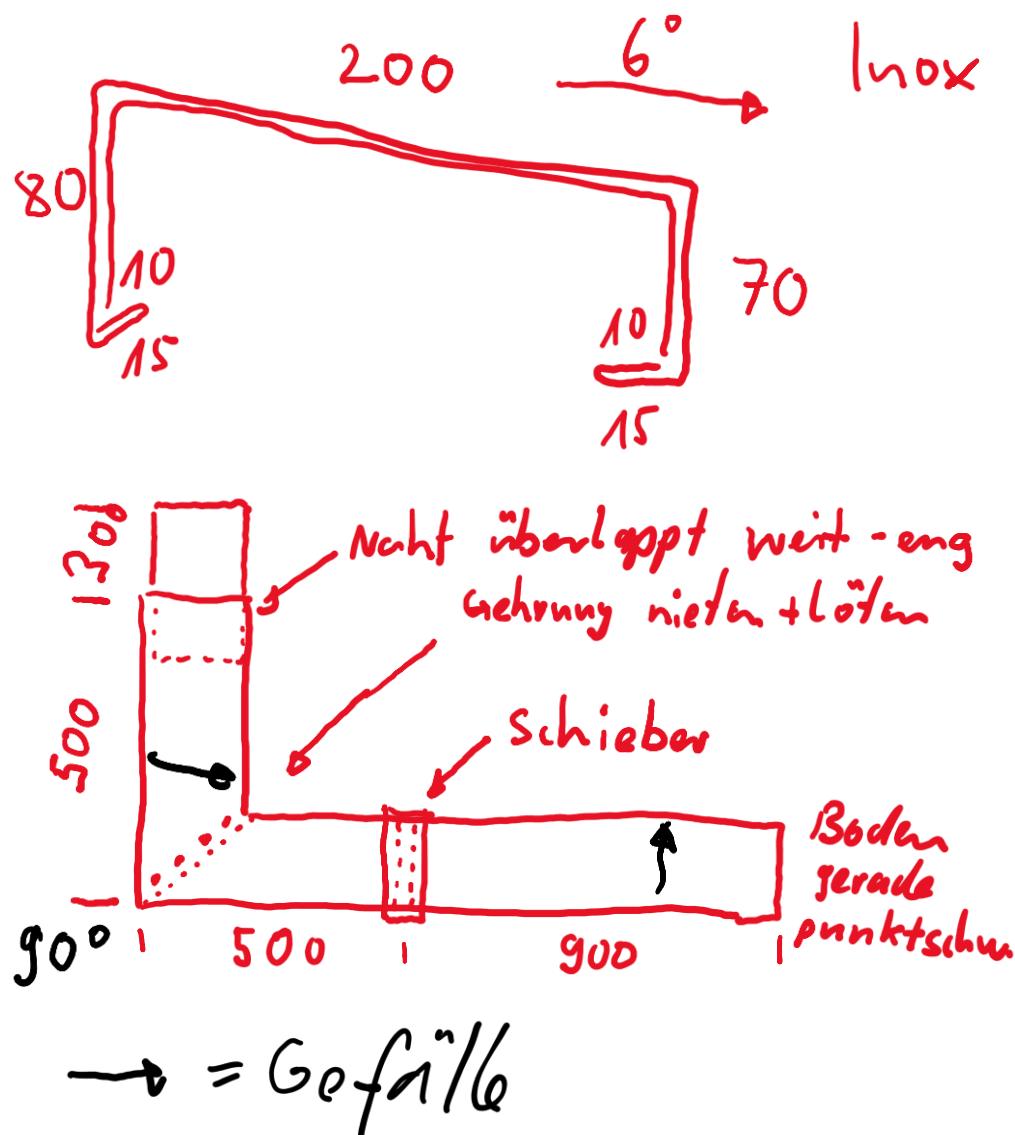 200
6°
Inox
80
10
15
70
10
15
130
Naht überlappt weit-eng
Gehrung nieten + löten
500
Schieber
Boden
gerade
punktschw.
90°
500
900
→ = Gefälle